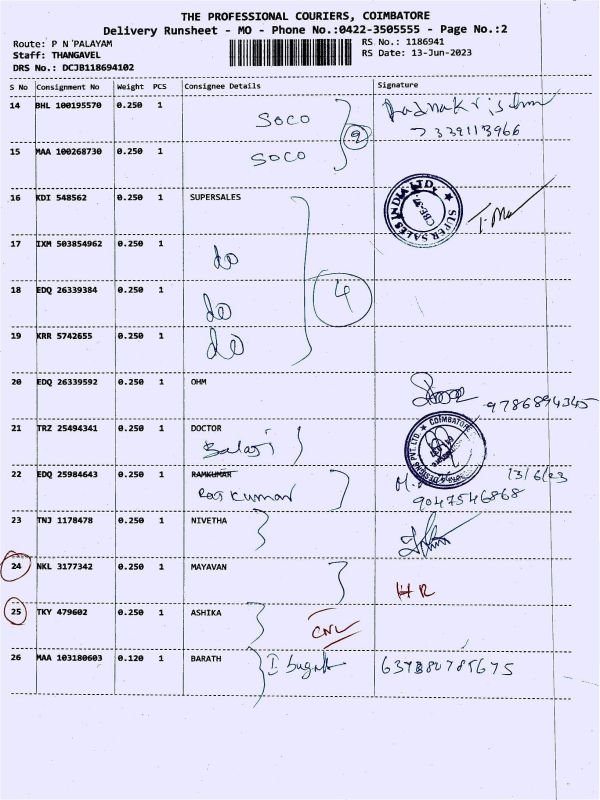 THE PROFESSIONAL COURIERS, COIMBATORE
Delivery Runsheet - MO - Phone No.:0422-3505555 - Page No.:2
Route: P N PALAYAM
RS No.: 1186941
Staff: THANGAVEL
RS Date: 13-Jun-2023
DRS No.: DCJB118694102
S No Consignment No Weight PCS Consignee Details Signature
14 BHL 100195570 0.250 1 SOCO
7339113966
15 MAA 100268730 0.250 1 SOCO
2
16 KDI 548562 0.250 1 SUPERSALES
SUPER SALES INDIA LTD.
CBE-37
17 IXM 503854962 0.250 1 do
18 EDQ 26339384 0.250 1 do
4
19 KRR 5742655 0.250 1 do
20 EDQ 26339592 0.250 1 OHM
9786894345
21 TRZ 25494341 0.250 1 DOCTOR
Balaji
COIMBATORE
PVT. LTD.
22 EDQ 25984643 0.250 1 RAMKUMAR
Raj kumar
13/6/23
9047546868
23 TNJ 1178478 0.250 1 NIVETHA
24 NKL 3177342 0.250 1 MAYAVAN
HR
25 TKY 479602 0.250 1 ASHIKA
CNL
26 MAA 103180603 0.120 1 BARATH